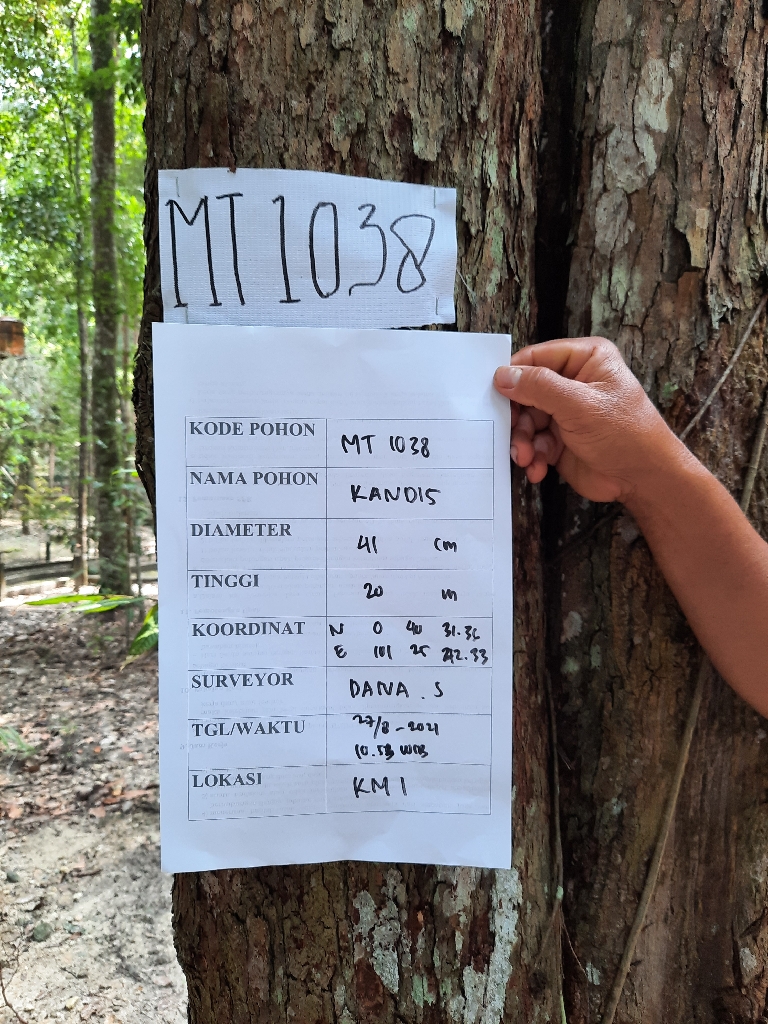 MT 1038
KODE POHON MT 1038
NAMA POHON KANDIS
DIAMETER 41 cm
TINGGI 20 m
KOORDINAT N 0 40 31.36
E 101 25
SURVEYOR DANA . S
TGL/WAKTU 27/8 - 2021
10.53 WIB
LOKASI KM 1